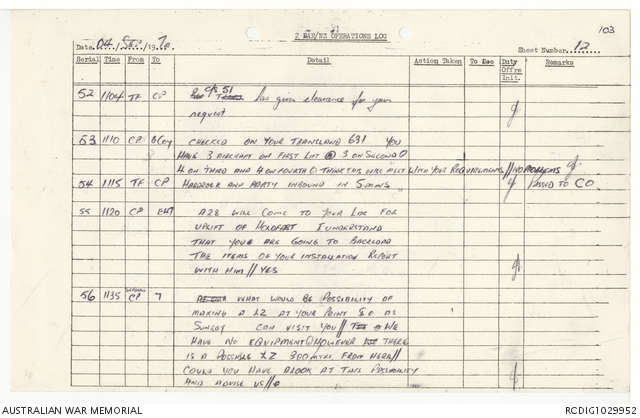 103
2 RAR/NZ OPERATIONS LOG
Date 04 / SEP / 1970 Sheet Number 12
Serial Time From To Detail Action Taken To See Duty Offrs Init. Remarks
52 1104 TF CP C/S 51 has given clearance for your
request
53 1110 CP BCoy CHECKED ON YOUR 631 YOU
HAVE 3 AIRCRAFT ON FIRST LIFT 3 ON SECOND
4 ON THIRD AND 4 ON FOURTH THINK THIS WILL MEET WITH YOUR REQUIREMENTS // NO PROBLEMS
54 1115 TF CP AND PARTY INBOUND IN 5 MINS PASSED TO CO
55 1120 CP A28 WILL COME TO YOUR LOC FOR
UPLIFT OF HOLDFAST I UNDERSTAND
THAT YOUR ARE GOING TO BACKLOAD
THE ITEMS OF YOUR INSTALLATION REPORT
WITH HIM // YES
56 1135 CP 7 WHAT WOULD BE POSSIBILITY OF
MAKING A LZ AT YOUR POINT SO AS
SUNRAY CAN VISIT YOU // WE
HAVE NO EQUIPMENT HOWEVER THERE
IS A POSSIBLE LZ 300 MTRS FROM HERE //
COULD YOU HAVE A LOOK AT THIS POSSIBILITY
AND ADVISE US //
AUSTRALIAN WAR MEMORIAL RCDIG1029952